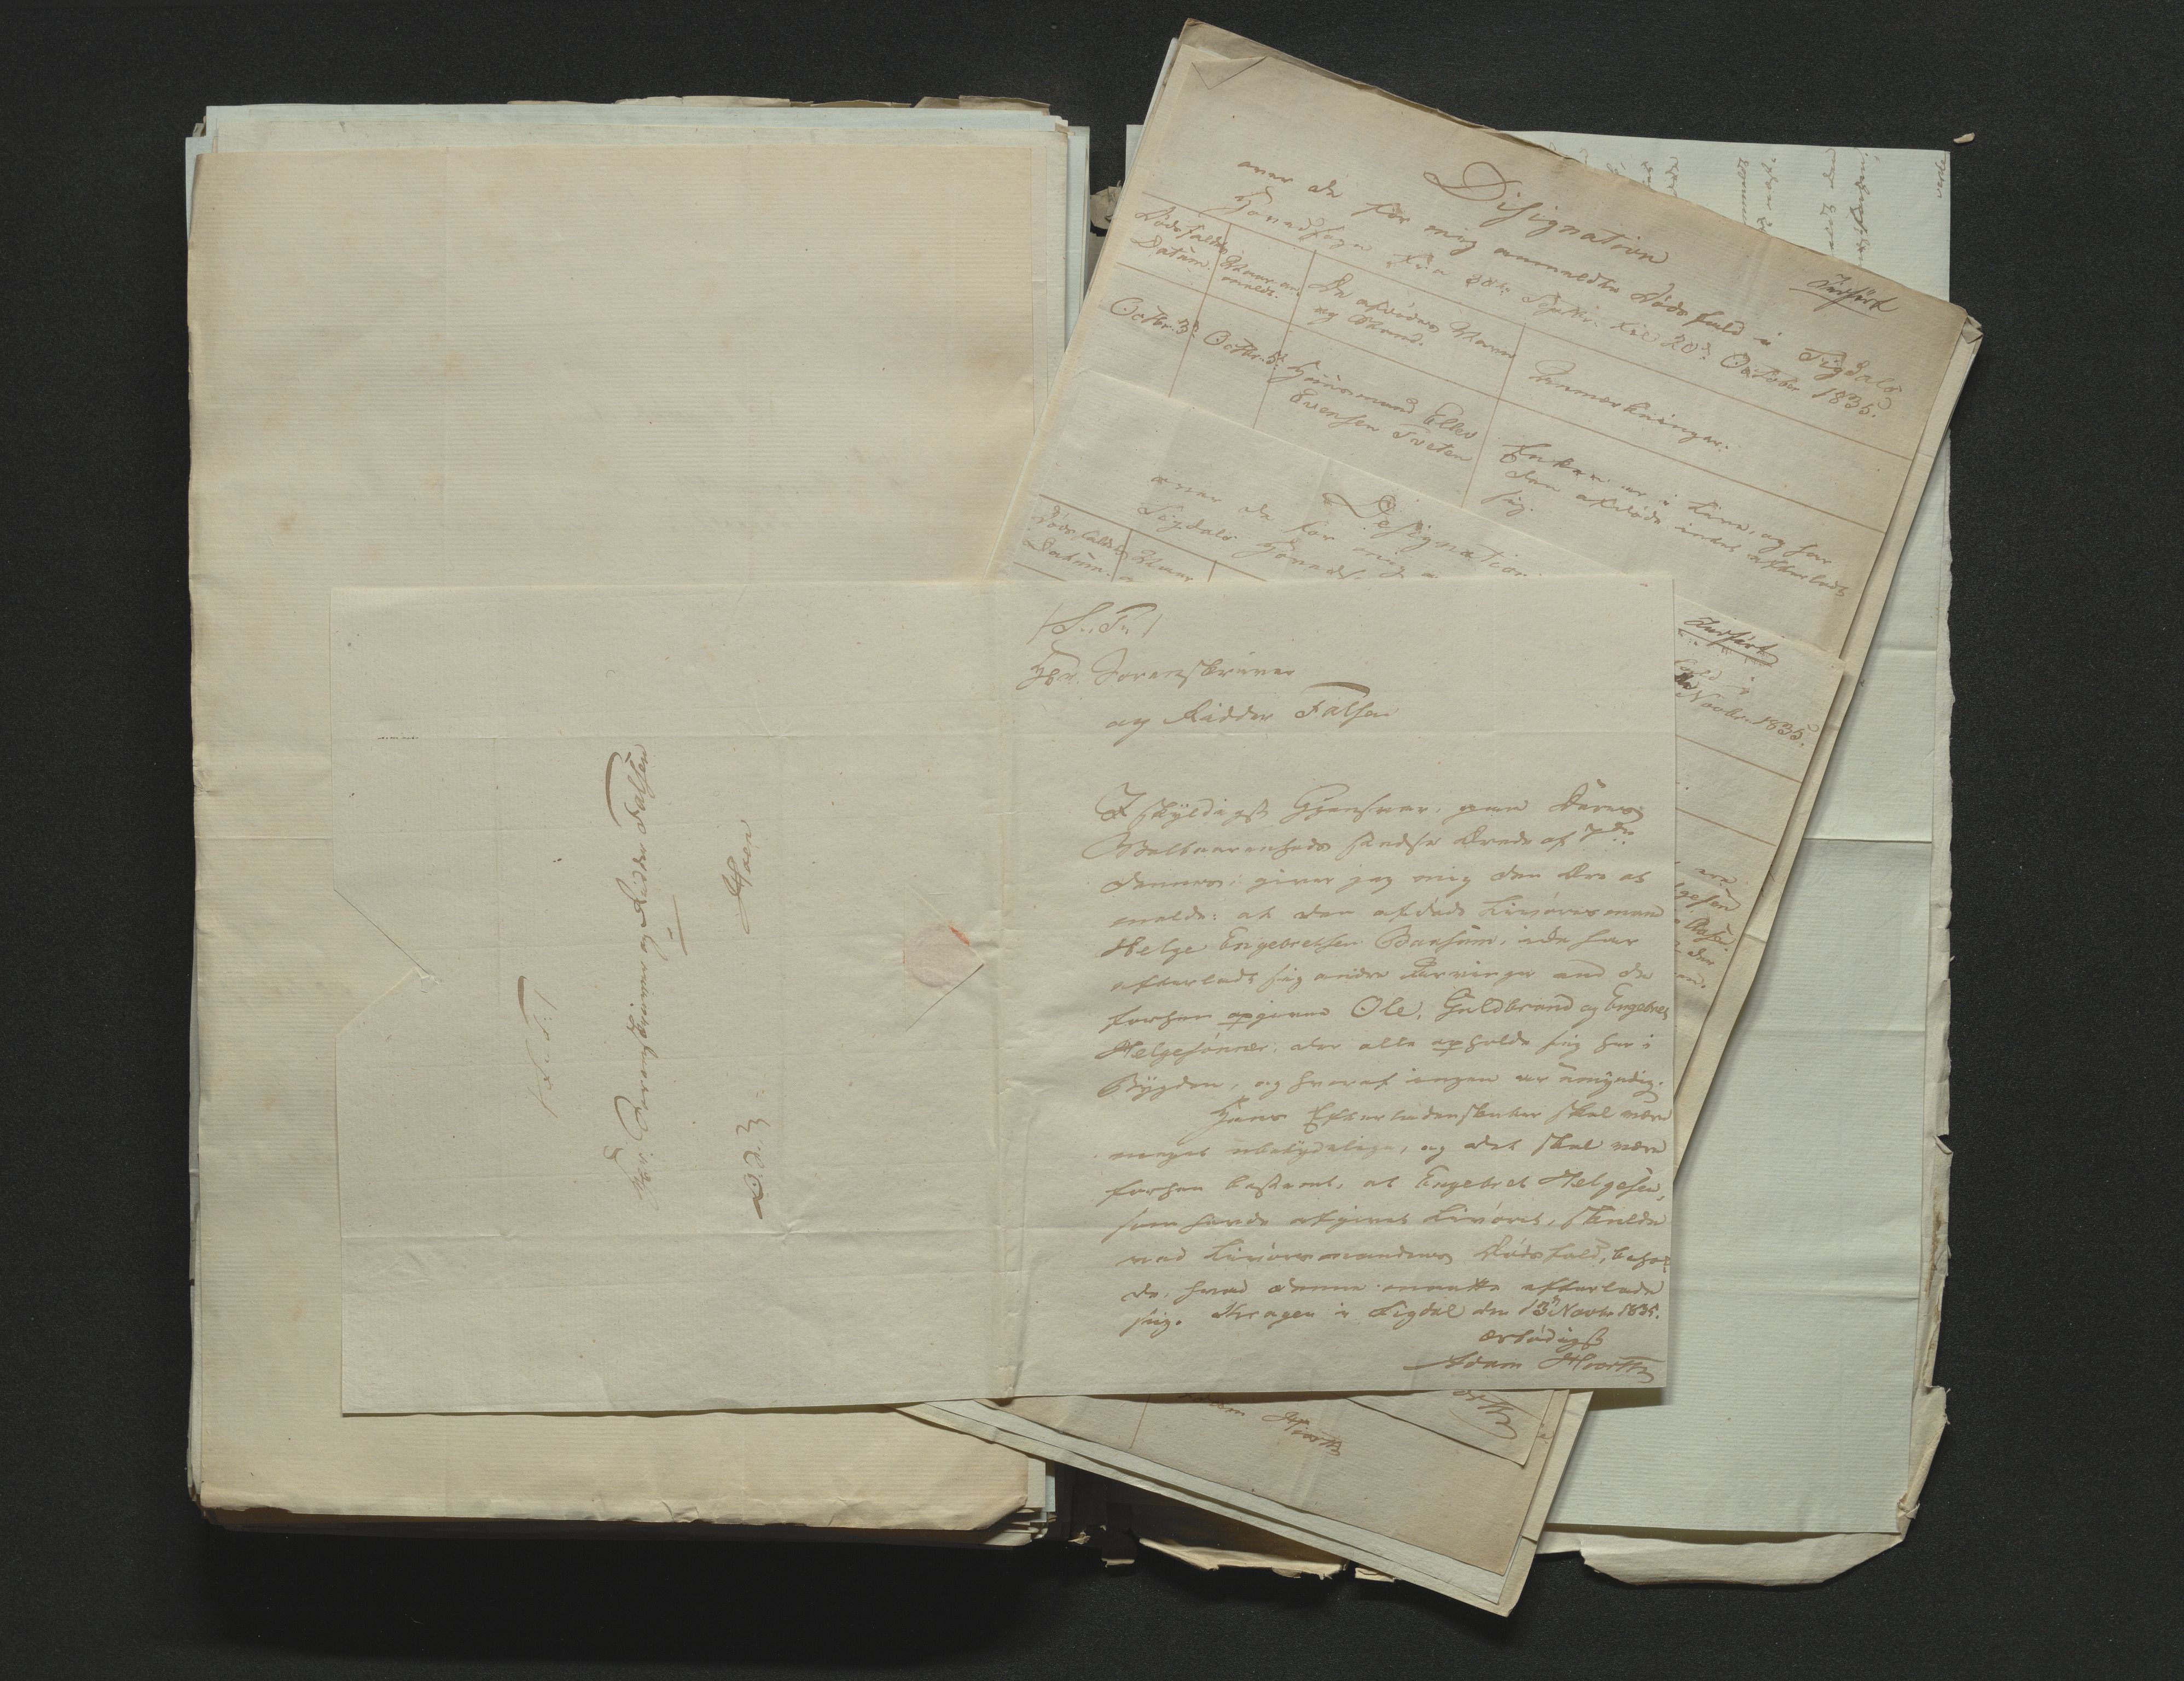 Designation
Indført
over de for mig anmeldte Dødsfald i Sigdals
Tinglag fra 20de Septbr. til 20de October 1835.
Dødsfaldets Datum.
Naar anmeldt.
De afdødes Navn og Stand.
Anmærkninger.
Octbr. 3de
Octbr. 5te
Huusmand Ellev
Evensen Tveten
Enken er i Live, og har
den afdøde intet efterladt
sig.
Designation
over de for mig
Sigdals
Indført
Novbr. 1835.
Dødsfaldets
Datum.
Naar
/S. T./
Hr. Sorenskriver
og Ridder Falsen
I skyldigst Giensvar paa Deres
Velbaarenheds sidste Brede af 7de
dennes, giver jeg mig den Ære at
melde: at den afdøde Livøresmand
Helge Engebretsen Baasum, ikke har
efterladt sig andre Arvinger end de
forhen opgivne Ole, Guldbrand og Engebret
Helgesønner, der alle opholde sig her i
Bygden, og hvoraf ingen er umyndig.
Hans Efterladenskaber skal være
meget ubetydelige, og det skal være
forhen bestemt, at Engebret Helgesen,
som havde afgivet Livøret, skulde
ved Livøresmandens Dødsfald, behol-
de, hvad denne maatte efterlade
sig. Kragen i Sigdal den 13de Novbr. 1835.
ærbødigst
Adam Hiorth
/S. T./
Hr. Sorenskriver og Ridder Falsen
Hoen
Adam Hiorth